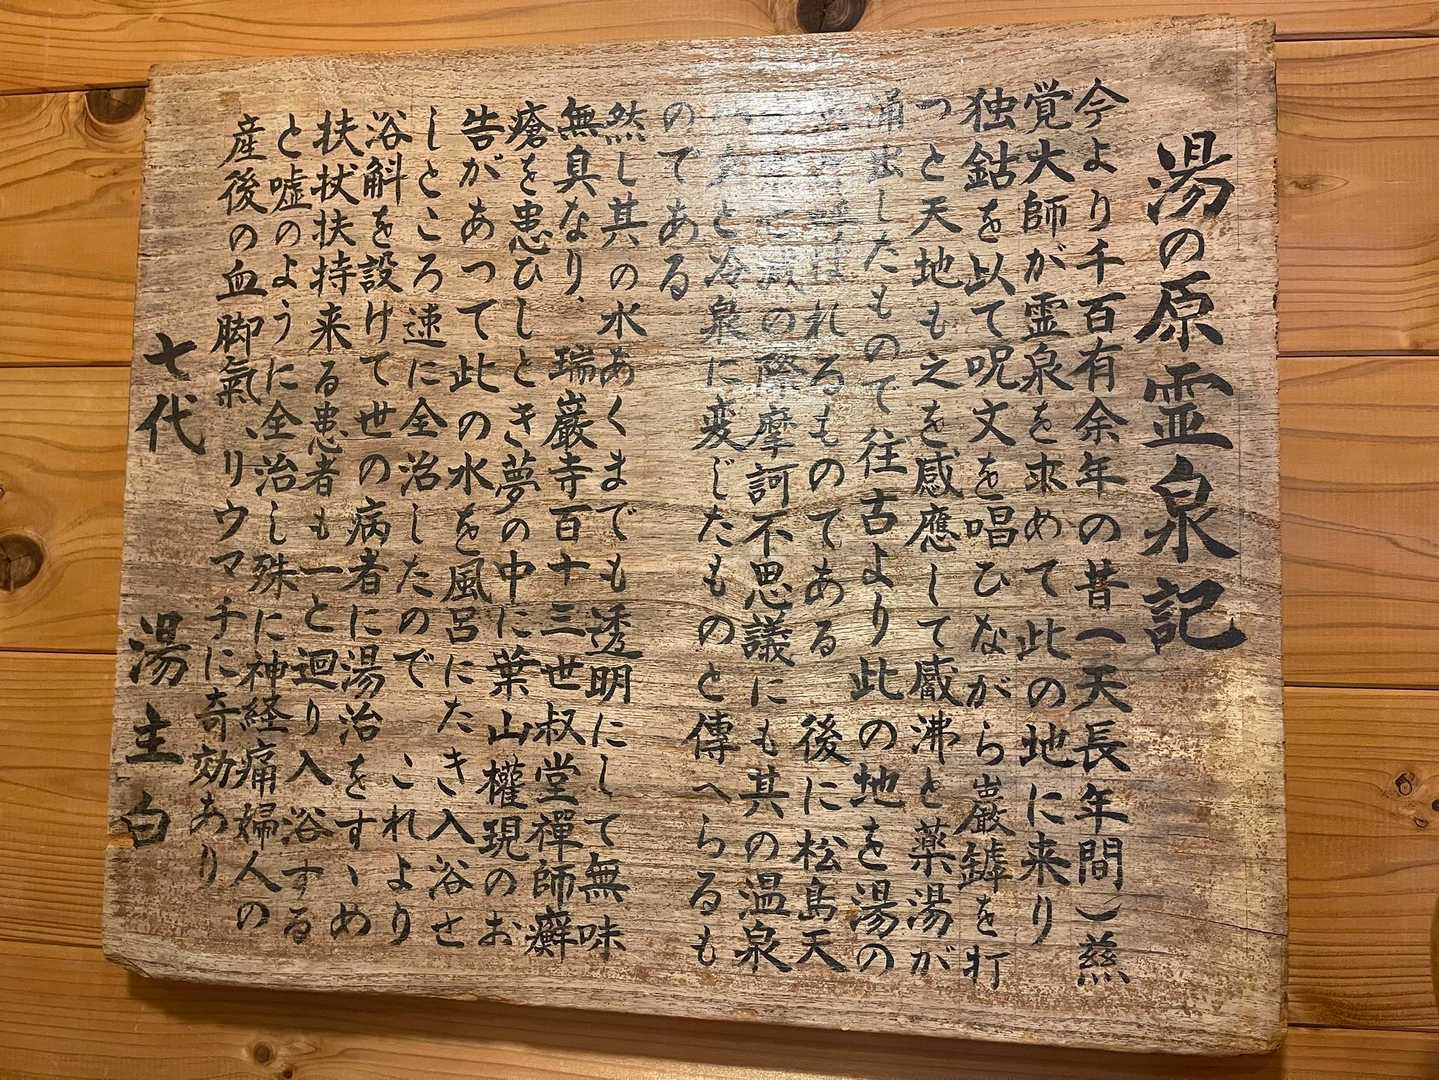 湯の原霊泉記
今より千百有余年の昔(天長年間)慈
覚大師が霊泉を求めて此の地に来り
独鈷を以て呪文を唱ひながら巌罅を打
つと天地も之を感應して霰沸と薬湯が
涌出したもので往古より此の地を湯の
呼ばれるものである 後に松島天
の際摩訶不思議にも其の温泉
と冷泉に変じたものと傳へらるも
のである
然し其の水あくまでも透明にして無味
無臭なり、瑞巌寺百十三世叔堂禪師癬
瘡を患ひしとき夢の中に葉山權現のお
告があつて此の水を風呂にたき入浴さ
しところ速に全治したので これより
浴斛を設けて世の病者に湯治をすゝめ
扶状扶持来る患者も一と廻り入浴する
と嘘のように全治し殊に神経痛婦人の
産後の血脚氣、リウマチに奇効あり
七代 湯主白